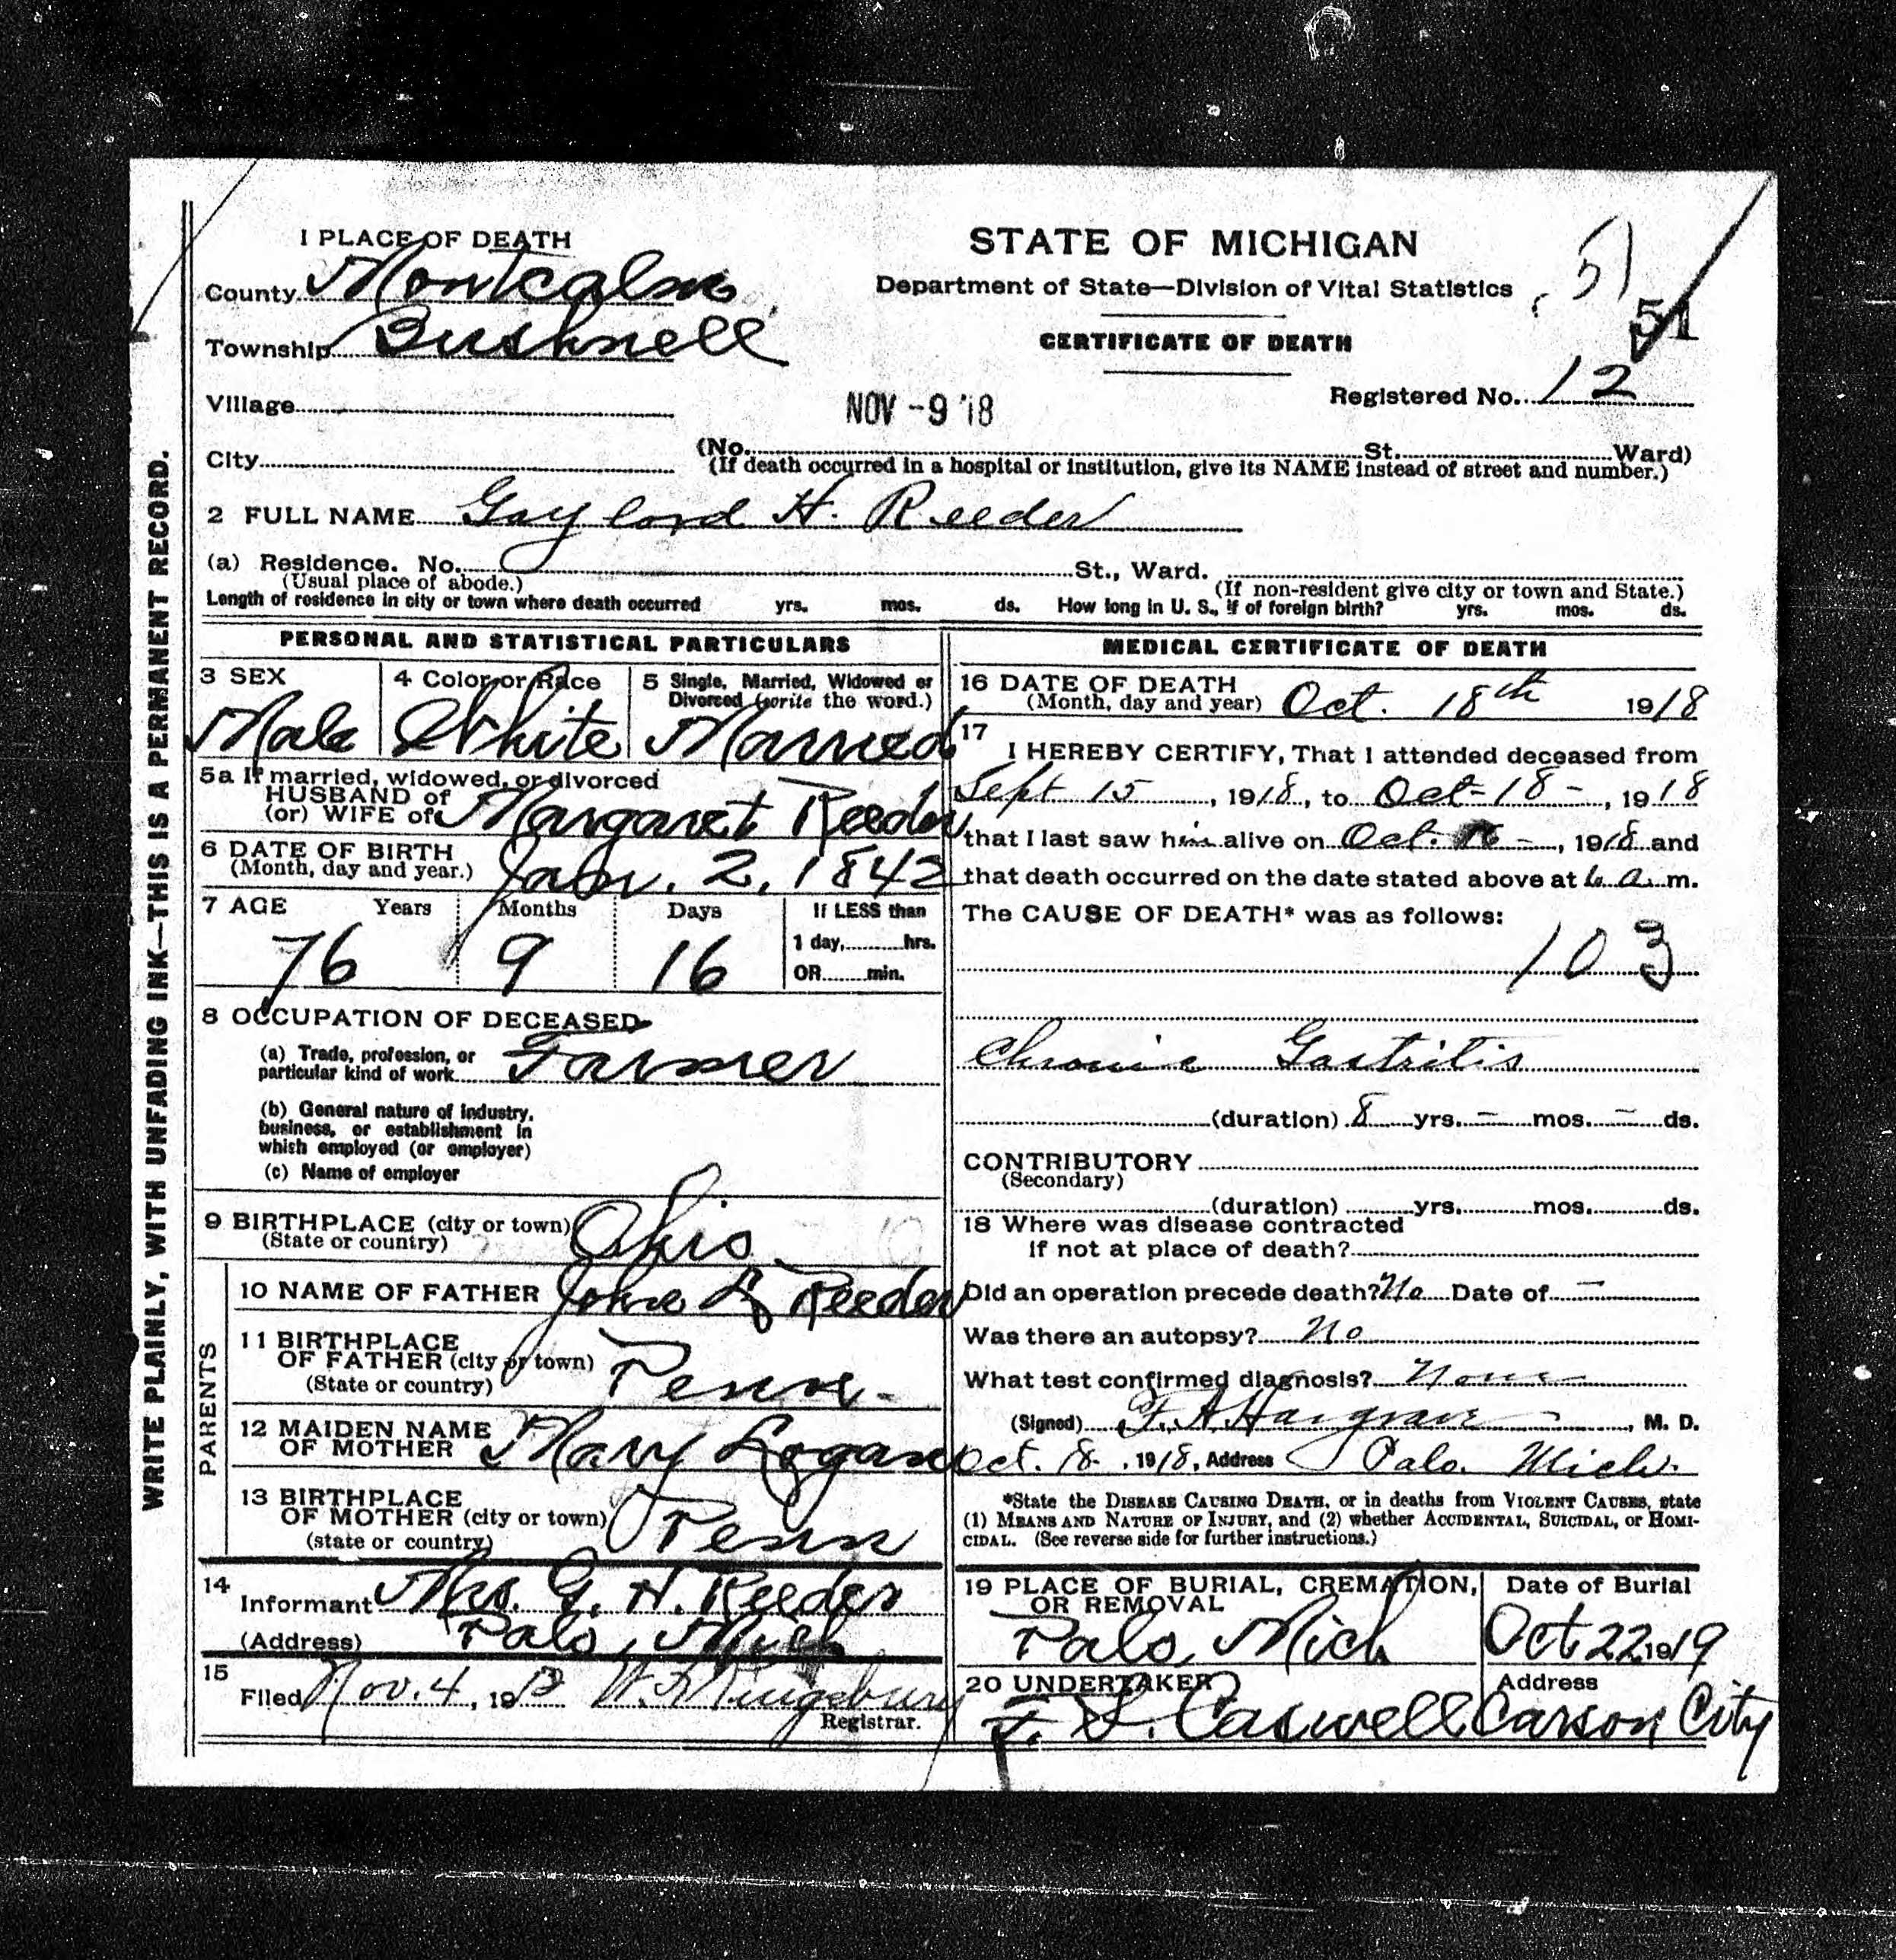 1 PLACE OF DEATH
County Montcalm
Township Bushnell
Village
City
STATE OF MICHIGAN
Department of State—Division of Vital Statistics
CERTIFICATE OF DEATH
51
51
Registered No. 12
NOV -9 '18
(No. St. Ward)
(If death occurred in a hospital or institution, give its NAME instead of street and number.)
2 FULL NAME Gaylord H. Reeder
(a) Residence. No. St., Ward.
(Usual place of abode.) (If non-resident give city or town and State.)
Length of residence in city or town where death occurred yrs. mos. ds. How long in U. S., if of foreign birth? yrs. mos. ds.
PERSONAL AND STATISTICAL PARTICULARS
3 SEX
Male
4 Color or Race
White
5 Single, Married, Widowed or
Divorced (write the word.)
Married
5a If married, widowed, or divorced
HUSBAND of
(or) WIFE of Margaret Reeder
6 DATE OF BIRTH
(Month, day and year.) Jan. 2, 1842
7 AGE Years Months Days
76 9 16
If LESS than
1 day, hrs.
OR min.
8 OCCUPATION OF DECEASED
(a) Trade, profession, or
particular kind of work Farmer
(b) General nature of industry,
business, or establishment in
which employed (or employer)
(c) Name of employer
9 BIRTHPLACE (city or town)
(State or country) Ohio
PARENTS
10 NAME OF FATHER John Reeder
11 BIRTHPLACE
OF FATHER (city or town)
(State or country) Penn.
12 MAIDEN NAME
OF MOTHER Mary Logan
13 BIRTHPLACE
OF MOTHER (city or town)
(state or country) Penn
14
Informant Mrs. G. H. Reeder
(Address) Palo, Mich
15
Filed Nov. 4, 19 Kingsbury
Registrar.
MEDICAL CERTIFICATE OF DEATH
16 DATE OF DEATH
(Month, day and year) Oct. 18th 1918
17
I HEREBY CERTIFY, That I attended deceased from
Sept 15, 1918, to Oct-18-, 1918
that I last saw him alive on Oct. 16-, 1918 and
that death occurred on the date stated above at 6 a. m.
The CAUSE OF DEATH* was as follows:
103
Chronic Gastritis
(duration) 8 yrs. - mos. - ds.
CONTRIBUTORY
(Secondary)
(duration) yrs. mos. ds.
18 Where was disease contracted
if not at place of death?
Did an operation precede death? No Date of -
Was there an autopsy? No
What test confirmed diagnosis? None
(Signed) F. A. Hargrave, M. D.
Oct. 18. , 1918, Address Palo. Mich.
*State the DISEASE CAUSING DEATH, or in deaths from VIOLENT CAUSES, state
(1) MEANS AND NATURE OF INJURY, and (2) whether ACCIDENTAL, SUICIDAL, or HOMI-
CIDAL. (See reverse side for further instructions.)
19 PLACE OF BURIAL, CREMATION,
OR REMOVAL
Palo Mich
Date of Burial
Oct 22 1919
20 UNDERTAKER
F. S. Caswell
Address
Carson City
WRITE PLAINLY, WITH UNFADING INK—THIS IS A PERMANENT RECORD.